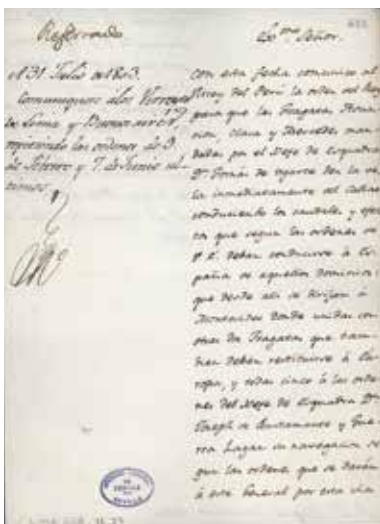 Reservado
A 31 Julio de 1803.
Comuniquese a los Virreyes
de Lima y Buenos ayres,
repitiendo las ordenes de 3
de Febrero y 7 de Junio ul-
timos.
Exmo. Señor.
Con esta fecha comunico al
Virrey del Perú la orden del Rey
para que las Fragatas Asun-
cion, Clara y Mercedes man-
dadas por el Xefe de Esquadra
Dn. Tomás de Ugarte den la ve-
la inmediatamente del Callao
conduciendo los caudales, y efec-
tos que segun las ordenes de
V.E. deban conducirse à Es-
paña de aquellos Dominios;
que desde alli se dirijan à
Montevideo donde unidas con
otras dos Fragatas que tam-
bien deben restituirse à Eu-
ropa, y todas cinco à las orde-
nes del Xefe de Esquadra Dn.
Joseph de Bustamante y Gue-
rra hagan su navegacion se-
gun las ordenes que se darán
à este General por esta via
SEVILLA